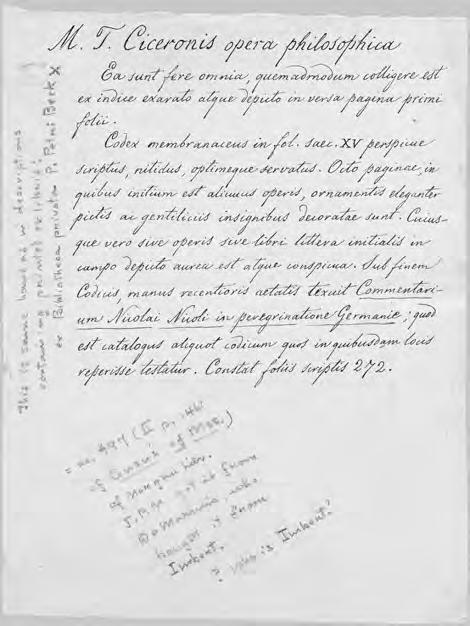 M. T. Ciceronis opera philosophica
Ea sunt fere omnia, quemadmodum colligere est
ex indice exarato atque depicto in versa pagina primi
folii.
Codex membranaceus in fol. saec. XV perspicue
scriptus, nitidus, optimeque servatus. Octo paginae, in
quibus initium est alicuius operis, ornamentis eleganter
pictis ac gentiliciis insignibus decoratae sunt. Cuius-
que vero sive operis sive libri littera initialis in
campo depicto aurea est atque conspicua. Sub finem
Codicis, manus recentioris aetatis texuit Commentari-
um Nicolai Nicoli in peregrinatione Germanie; quod
est catalogus aliquot codicum quos in quibusdam locis
reperisse testatur. Constat foliis scriptis 272.
This is same hand as in descriptions
containing printed ex libris:
ex Bibliotheca privata P. Petri Beckx
= no. 497 (II p. 1467
of Census of Mss.)
of Morgan Libr.
J.P.M. got it from
De Marinis, who
bought it from
Imbert.
? who is Imbert?